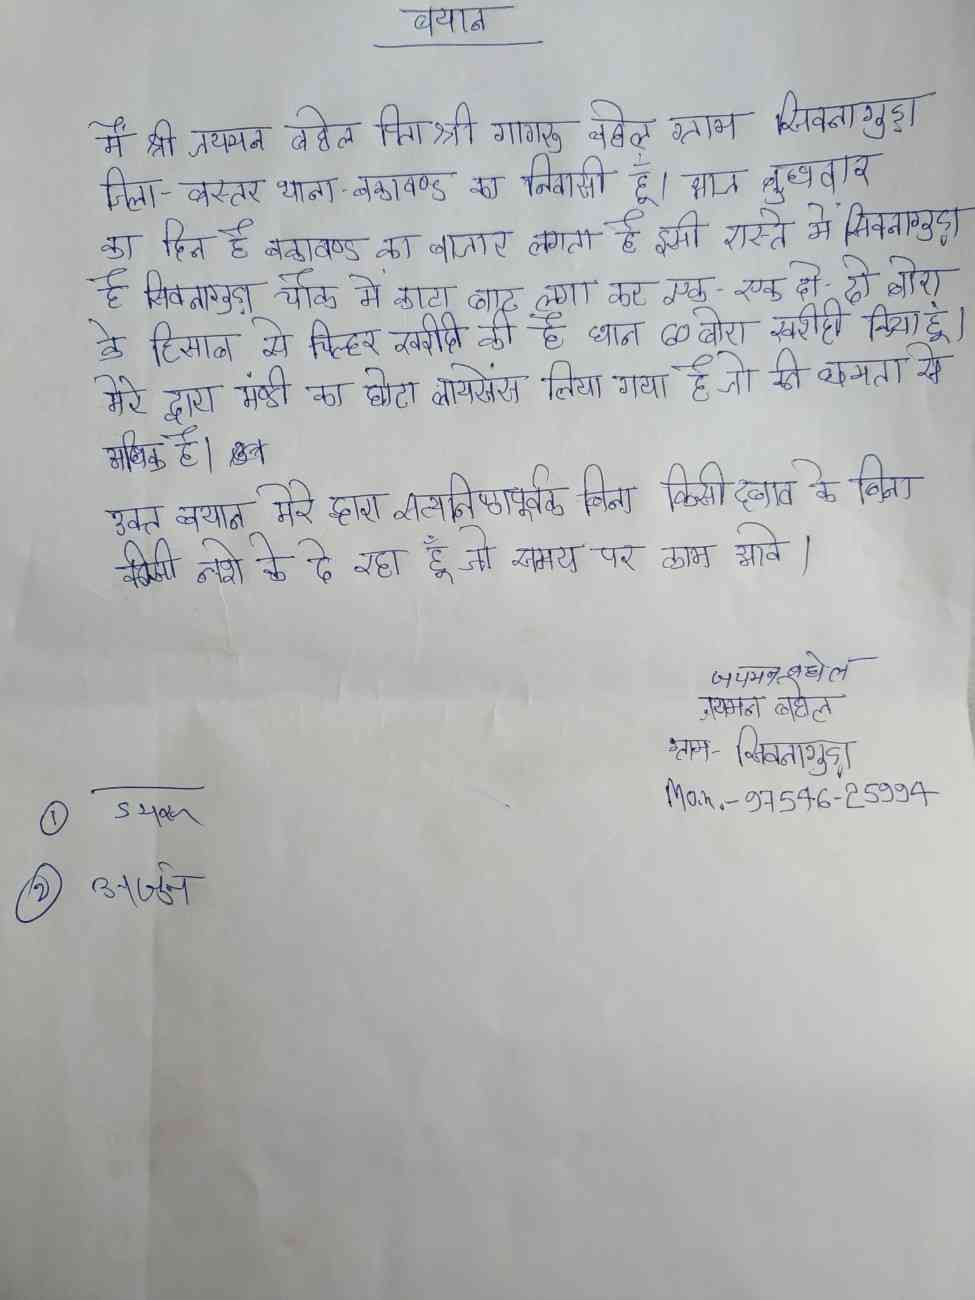 बयान
मैं श्री जयमन बघेल पिता श्री गागरू बघेल ग्राम सिवनागुड़ा
जिला - बस्तर थाना - बकावण्ड का निवासी हूँ। आज बुधवार
का दिन है बकावण्ड का बाजार लगता है इसी रास्ते में सिवनागुड़ा
है सिवनागुड़ा चौक में काटा बाट लगा कर एक - एक दो - दो बोरा
के हिसाब से चिल्हर खरीदी की है धान 60 बोरा खरीदी किया हूं।
मेरे द्वारा मंण्डी का छोटा लायसेंस लिया गया है जो की क्षमता से
अधिक है।
उक्त बयान मेरे द्वारा सत्यनिष्ठापूर्वक बिना किसी दबाव के बिना
किसी नशे के दे रहा हूँ जो समय पर काम आवे।
जयमन बघेल
जयमन बघेल
ग्राम - सिवनागुड़ा
Mo.n. - 97546-25994
①
② अर्जुन